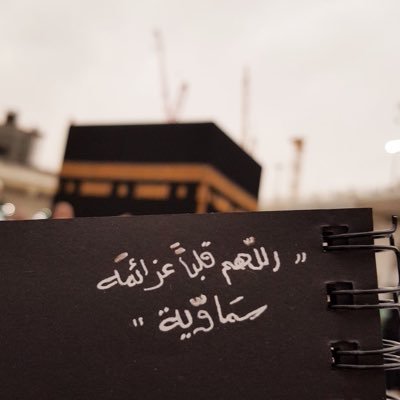 " اللّهم قلباً عزائمه
سَماوّية "